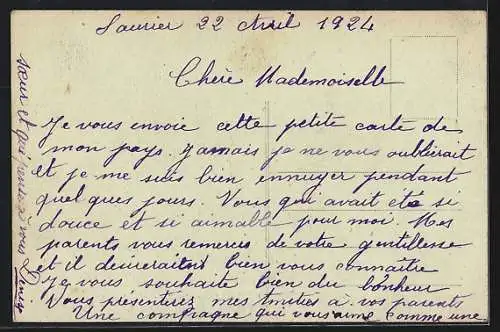 Saurier 22 Avril 1924
Chère Mademoiselle
Je vous envoie cette petite carte de
mon pays. Jamais je ne vous oublirait
et je me suis bien ennuyer pendant
quelques jours. Vous qui avait été si
douce et si aimable pour moi. Mes
parents vous remercis de votre gentillesse
et il desireraient bien vous connaître
Je vous souhaite bien du bonheur
Vous présenterez mes amitiés à vos parents
Une compagne qui vous aime comme une
sœur et qui pense à vous